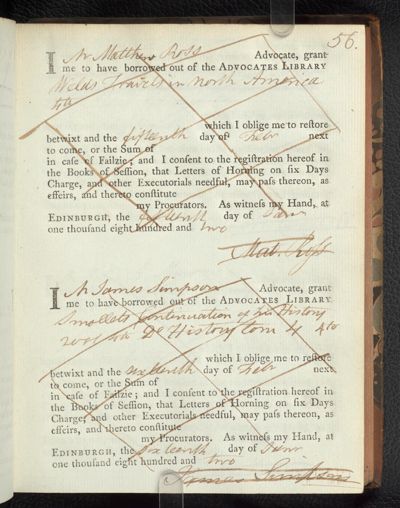 56.
I Mr Matthew Ross Advocate, grant
me to have borrowed out of the ADVOCATES LIBRARY
Welds Travels in North America
4to
which I oblige me to restore
betwixt and the fifteenth day of Febr next
to come, or the Sum of
in case of Failzie; and I consent to the registration hereof in
the Books of Session, that Letters of Horning on six Days
Charge, and other Executorials needful, may pass thereon, as
effeirs, and thereto constitute
my Procurators. As witness my Hand, at
EDINBURGH, the fifteenth day of Janr
one thousand eight hundred and two
Mat. Ross
I Mr James Simpson Advocate, grant
me to have borrowed out of the ADVOCATES LIBRARY
Smollets Continuation of his History
2 vols Do History tom 4 4to
which I oblige me to restore
betwixt and the sixteenth day of Febr next
to come, or the Sum of
in case of Failzie; and I consent to the registration hereof in
the Books of Session, that Letters of Horning on six Days
Charge, and other Executorials needful, may pass thereon, as
effeirs, and thereto constitute
my Procurators. As witness my Hand, at
EDINBURGH, the sixteenth day of Janr
one thousand eight hundred and two
James Simpson